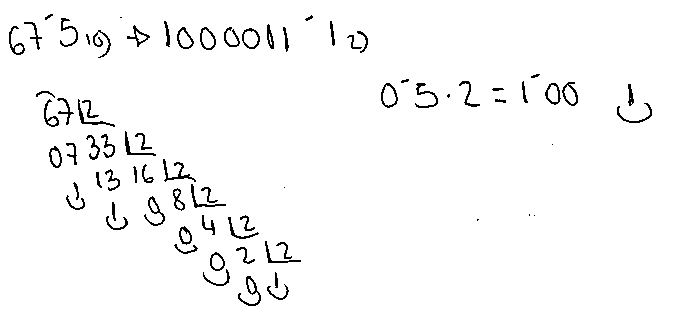 67'5₁₀) → 1000011'1₂)
0'5·2=1'00 1
67 2
07 33 2
1 13 16 2
1 0 8 2
0 4 2
0 2 2
0 1